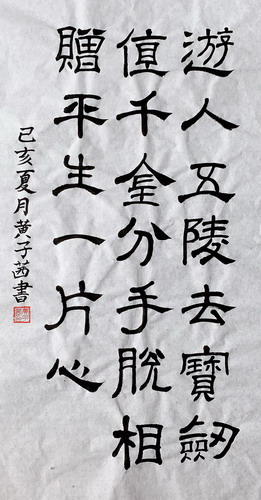 遊人五陵去寶劒
值千金分手脫相
贈平生一片心
己亥夏月黄子茜書